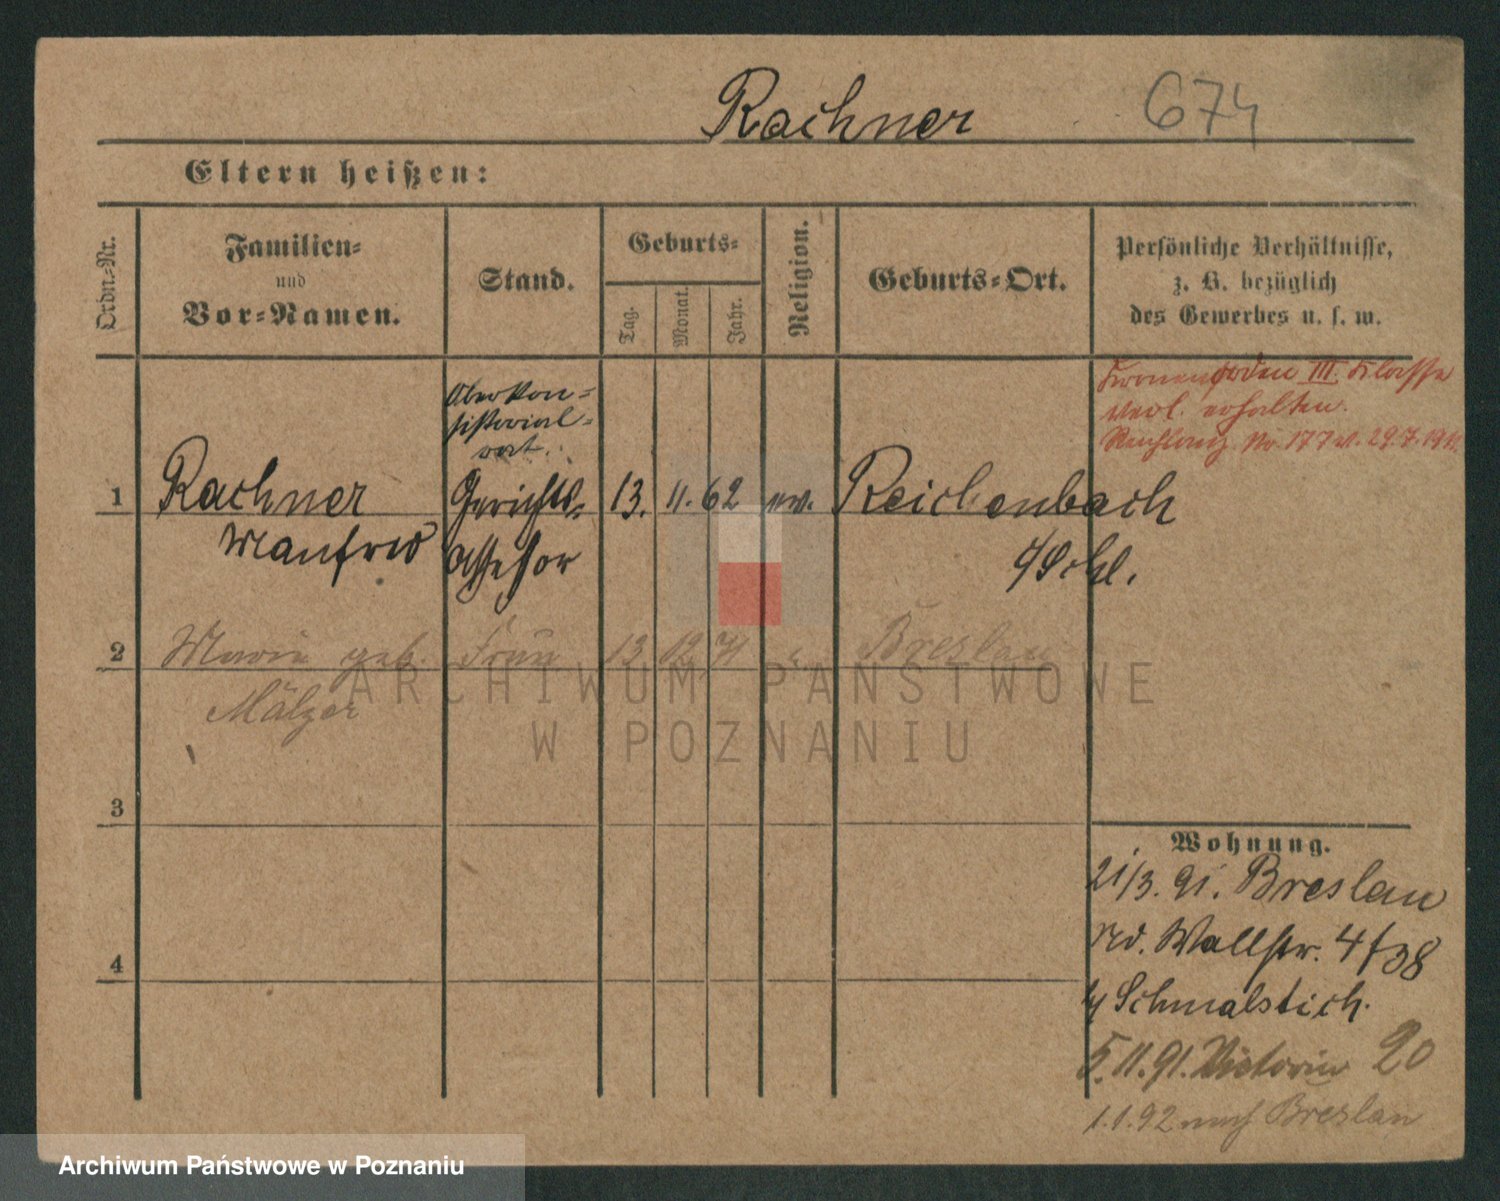 Rachner 674
Eltern heißen:
Ordn.-Nr.
Familien-
und
Vor-Namen.
Stand.
Geburts-
Tag.
Monat.
Jahr.
Religion.
Geburts-Ort.
Persönliche Verhältnisse,
z. B. bezüglich
des Gewerbes u. s. w.
Kronenorden III. Klasse
verl. erhalten.
Nr. 177 v. 29.7.
Oberkon-
sistorial-
rat.
1 Rachner Gerichts- 13. 11. 62 ev. Reichenbach
Manfred Assessor /Schl.
2 Marie geb. Frau 13 12 71 " Breslau
Mälzer
3
4
Wohnung.
21/3. 91. Breslau
Wallstr. 4 / 38
b/ Schmalstich.
5. 11. 91. Victoria 20
1.1.92 nach Breslau
ARCHIWUM PAŃSTWOWE
W POZNANIU
Archiwum Państwowe w Poznaniu